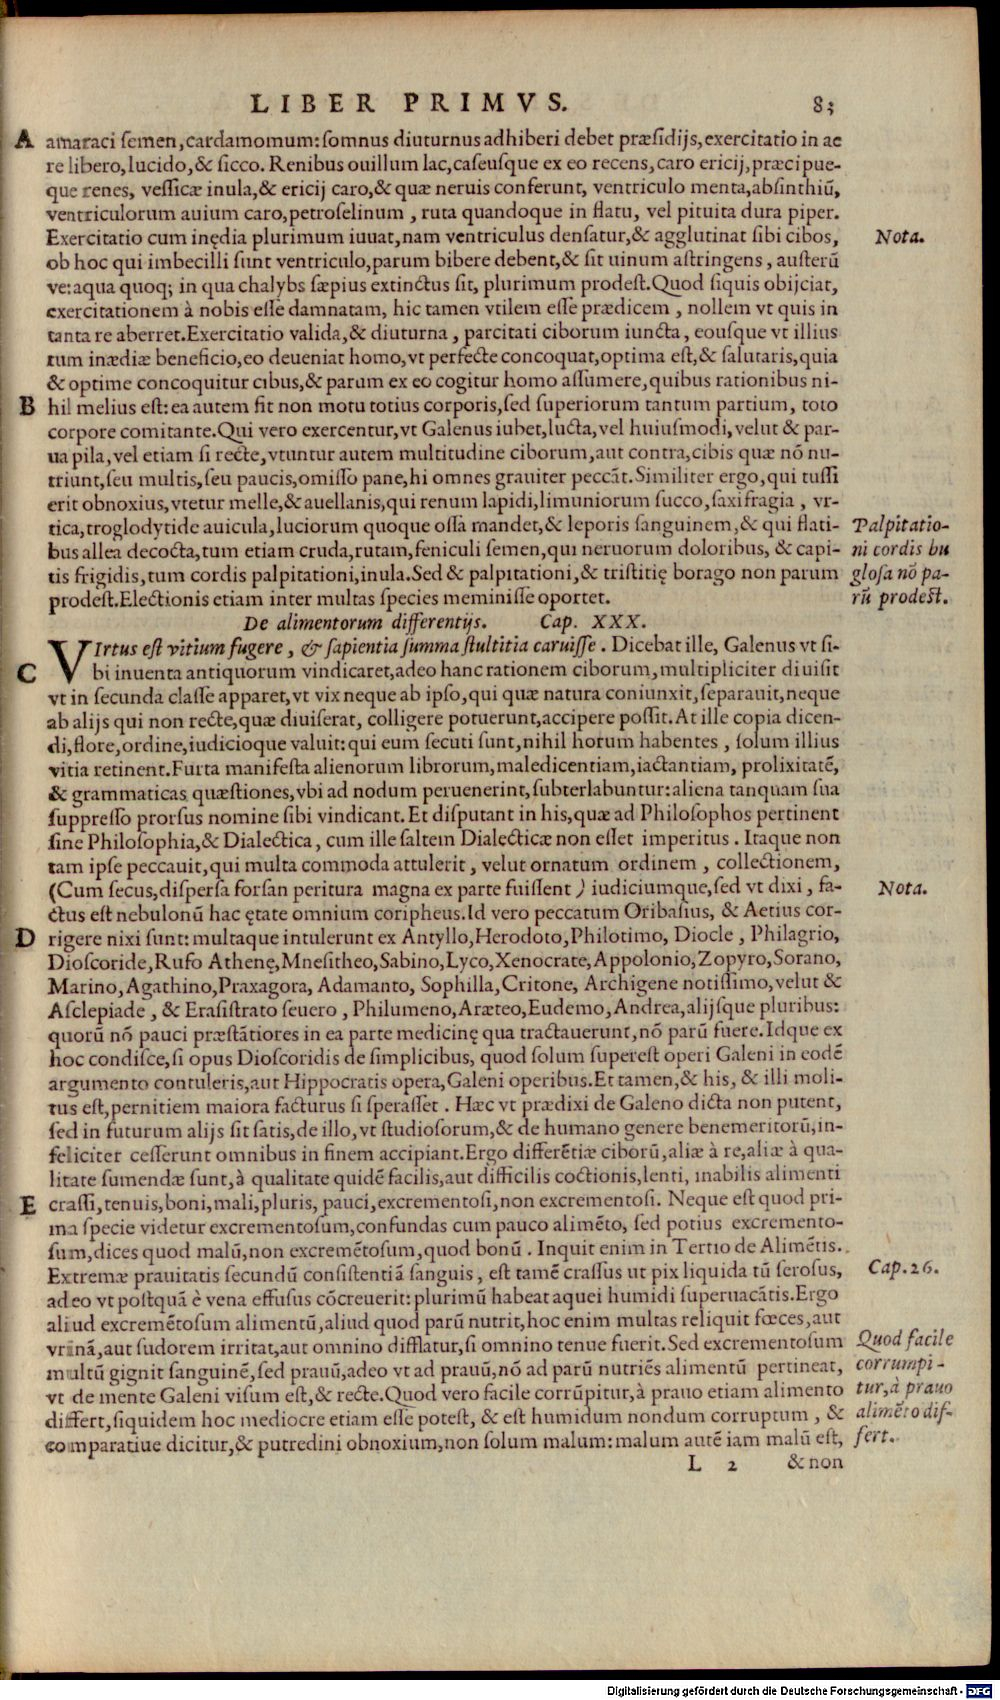 LIBER PRIMVS. 83
A amaraci semen,cardamomum:somnus diuturnus adhiberi debet præsidijs,exercitatio in ae
re libero,lucido,& sicco. Renibus ouillum lac,caseusque ex eo recens,caro ericij,præcipue-
que renes, vessicæ inula,& ericij caro,& quæ neruis conferunt, ventriculo menta,absinthiū,
ventriculorum auium caro,petroselinum , ruta quandoque in flatu, vel pituita dura piper.
Exercitatio cum inędia plurimum iuuat,nam ventriculus densatur,& agglutinat sibi cibos,
Nota.
ob hoc qui imbecilli sunt ventriculo,parum bibere debent,& sit uinum astringens , austerū
ve:aqua quoq; in qua chalybs sæpius extinctus sit, plurimum prodest.Quod siquis obijciat,
exercitationem à nobis esse damnatam, hic tamen vtilem esse prædicem , nollem vt quis in
tanta re aberret.Exercitatio valida,& diuturna , parcitati ciborum iuncta , eousque vt illius
tum inædiæ beneficio,eo deueniat homo,vt perfecte concoquat,optima est,& salutaris,quia
& optime concoquitur cibus,& parum ex eo cogitur homo assumere,quibus rationibus ni-
B hil melius est:ea autem fit non motu totius corporis,sed superiorum tantum partium, toto
corpore comitante.Qui vero exercentur,vt Galenus iubet,lucta,vel huiusmodi,velut & par-
ua pila,vel etiam si recte,vtuntur autem multitudine ciborum,aut contra,cibis quæ nō nu-
triunt,seu multis,seu paucis,omisso pane,hi omnes grauiter peccāt.Similiter ergo,qui tussi
erit obnoxius,vtetur melle,& auellanis,qui renum lapidi,limuniorum succo,saxifragia , vr-
tica,troglodytide auicula,luciorum quoque ossa mandet,& leporis sanguinem,& qui flati-
bus allea decocta,tum etiam cruda,rutam,feniculi semen,qui neruorum doloribus, & capi-
tis frigidis,tum cordis palpitationi,inula.Sed & palpitationi,& tristitię borago non parum
prodest.Electionis etiam inter multas species meminisse oportet.
Palpitatio-
ni cordis bu
glosa nō pa-
rū prodest.
De alimentorum differentijs. Cap. XXX.
VIrtus est vitium fugere , & sapientia summa stultitia caruisse . Dicebat ille, Galenus vt si-
C bi inuenta antiquorum vindicaret,adeo hanc rationem ciborum,multipliciter diuisit
vt in secunda classe apparet,vt vix neque ab ipso,qui quæ natura coniunxit,separauit,neque
ab alijs qui non recte,quæ diuiserat, colligere potuerunt,accipere possit.At ille copia dicen-
di,flore,ordine,iudicioque valuit:qui eum secuti sunt,nihil horum habentes , solum illius
vitia retinent.Furta manifesta alienorum librorum,maledicentiam,iactantiam, prolixitatē,
& grammaticas quæstiones,vbi ad nodum peruenerint,subterlabuntur:aliena tanquam sua
suppresso prorsus nomine sibi vindicant. Et disputant in his,quæ ad Philosophos pertinent
sine Philosophia,& Dialectica , cum ille saltem Dialecticæ non esset imperitus . Itaque non
tam ipse peccauit,qui multa commoda attulerit , velut ornatum ordinem , collectionem,
(Cum secus,dispersa forsan peritura magna ex parte fuissent ) iudiciumque,sed vt dixi , fa-
Nota.
ctus est nebulonū hac ętate omnium coripheus.Id vero peccatum Oribasius, & Aetius cor-
D rigere nixi sunt: multaque intulerunt ex Antyllo,Herodoto,Philotimo, Diocle , Philagrio,
Dioscoride,Rufo Athenę,Mnesitheo,Sabino,Lyco,Xenocrate,Appolonio,Zopyro,Sorano,
Marino,Agathino,Praxagora, Adamanto, Sophilla,Critone, Archigene notissimo,velut &
Asclepiade , & Erasistrato seuero , Philumeno,Aræteo,Eudemo,Andrea,alijsque pluribus:
quorū nō pauci præstātiores in ea parte medicinę qua tractauerunt,nō parū fuere.Idque ex
hoc condisce,si opus Dioscoridis de simplicibus, quod solum superest operi Galeni in eodē
argumento contuleris,aut Hippocratis opera,Galeni operibus.Et tamen,& his, & illi moli-
tus est,pernitiem maiora facturus si sperasset . Hæc vt prædixi de Galeno dicta non putent,
sed in futurum alijs sit satis,de illo,vt studiosorum,& de humano genere benemeritorū,in-
feliciter cesserunt omnibus in finem accipiant.Ergo differētiæ ciborū,aliæ à re,aliæ à qua-
litate sumendæ sunt,à qualitate quidē facilis,aut difficilis coctionis,lenti, inabilis alimenti
E crassi,tenuis,boni,mali,pluris, pauci,excrementosi,non excrementosi. Neque est quod pri-
ma specie videtur excrementosum,confundas cum pauco alimēto, sed potius excremento-
sum,dices quod malū,non excremētosum,quod bonū . Inquit enim in Tertio de Alimētis.
Extremæ prauitatis secundū consistentiā sanguis , est tamē crassus ut pix liquida tū serosus,
Cap.26.
adeo vt postquā è vena effusus cōcreuerit: plurimū habeat aquei humidi superuacātis.Ergo
aliud excremētosum alimentū,aliud quod parū nutrit,hoc enim multas reliquit fœces,aut
vrinā,aut sudorem irritat,aut omnino difflatur,si omnino tenue fuerit.Sed excrementosum
multū gignit sanguinē,sed prauū,adeo vt ad prauū,nō ad parū nutriēs alimentū pertineat,
vt de mente Galeni visum est,& recte.Quod vero facile corrūpitur,à prauo etiam alimento
differt,siquidem hoc mediocre etiam esse potest, & est humidum nondum corruptum , &
comparatiue dicitur,& putredini obnoxium,non solum malum:malum autē iam malū est,
Quod facile
corrumpi-
tur,à prauo
alimēto dif-
fert.
L 2 & non
Digitalisierung gefördert durch die Deutsche Forschungsgemeinschaft - DFG